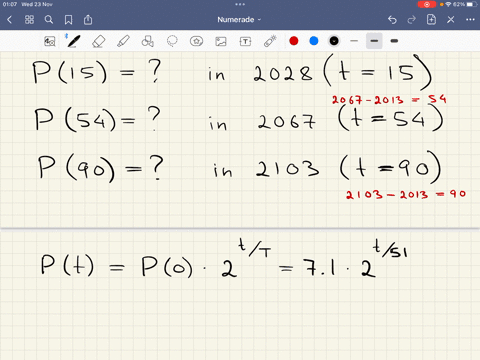 01:07 Wed 23 Nov
62%
Numerade
P(15) = ? in 2028 (t = 15)
2067 - 2013 = 54
P(54) = ? in 2067 (t = 54)
P(90) = ? in 2103 (t = 90)
2103 - 2013 = 90
P(t) = P(0) · 2^t/T = 7.1 · 2^t/51